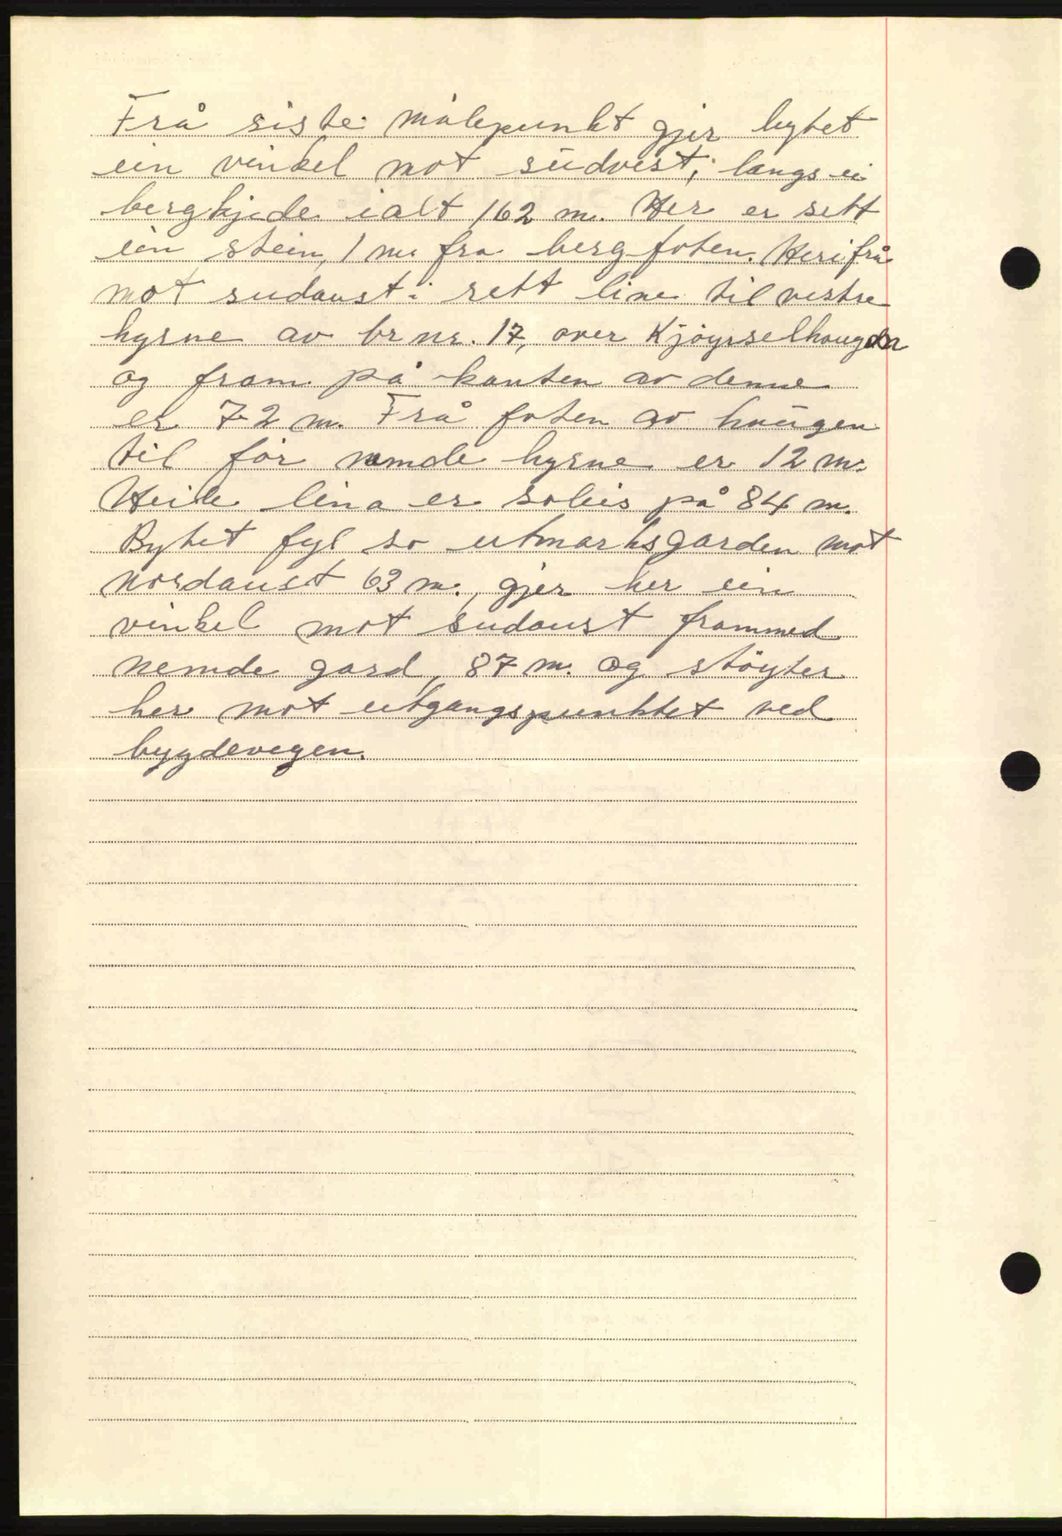 Frå siste målepunkt gjer bytet
ein vinkel mot sudvest, langs ei
bergkjede ialt 162 m. Her er sett
ein stein, 1 m. fra bergfoten. Herifrå
mot sudaust i rett line til vestre
hyrne av br nr. 17, over Kjøyrselhaugen
og fram på kanten av denne
er 72 m. Frå foten av haugen
til før nemde hyrne er 12 m.
Heile lina er soleis på 84 m.
Bytet fyl so utmarksgarden mot
nordaust 63 m., gjer her ein
vinkel mot sudaust frammed
nemde gard, 87 m. og støyter
her mot utgangspunktet ved
bygdevegen.